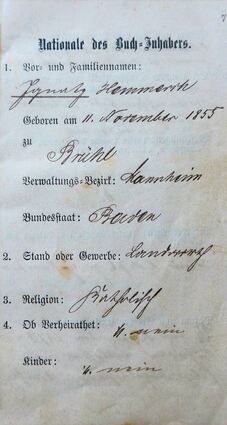 7
Nationale des Buch-Inhabers.
1. Vor- und Familiennamen:
Ignatz Hemmerich
Geboren am 11. November 1855
zu
Brühl
Verwaltungs-Bezirk: Mannheim
Bundesstaat: Baden
2. Stand oder Gewerbe: Landwirth
3. Religion: Katholisch
4. Ob Verheirathet:
nein
Kinder:
nein